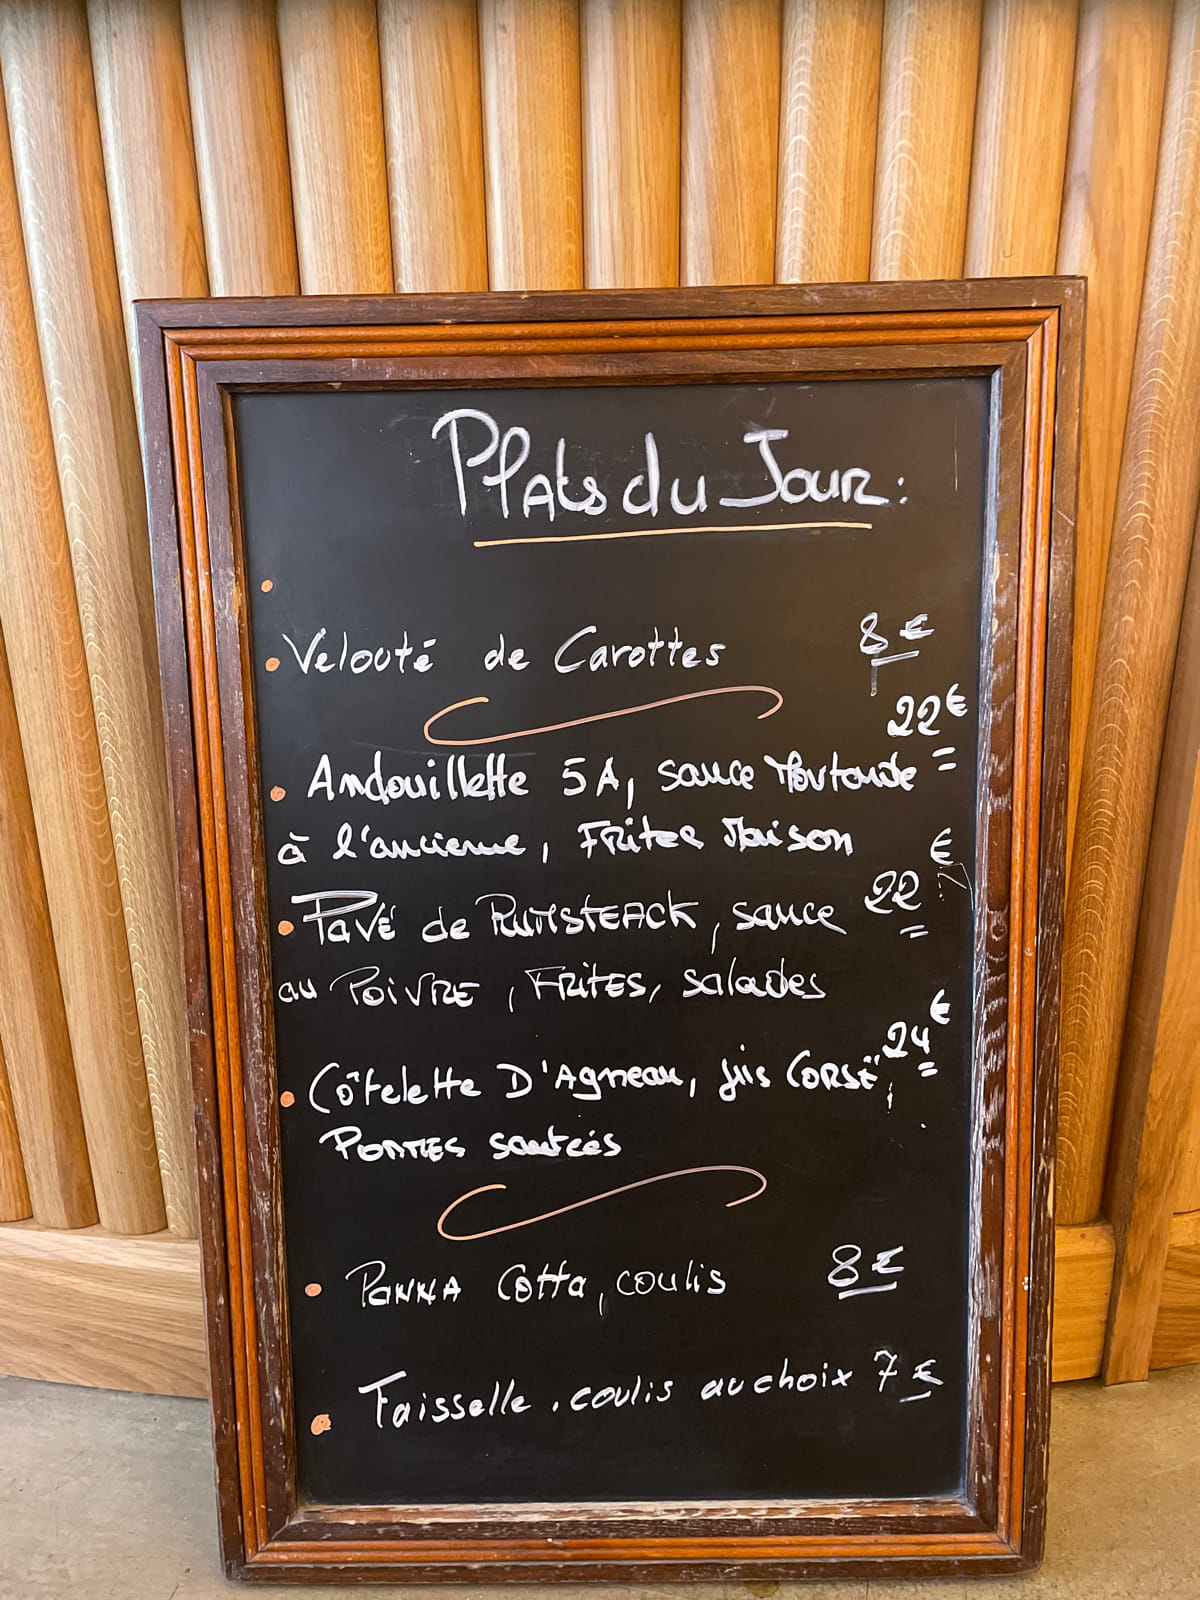 Plats du Jour :
Velouté de Carottes 8 €
22 €
Andouillette 5A, sauce Moutarde
à l'ancienne, Frites Maison
Pavé de RUMSTEACK, sauce 22 €
au POIVRE, FRITES, salades
Côtelette D'Agneau, jus CORSÉ, 24 €
POMMES sautéés
PANNA Cotta, coulis 8 €
Faisselle. coulis au choix 7 €